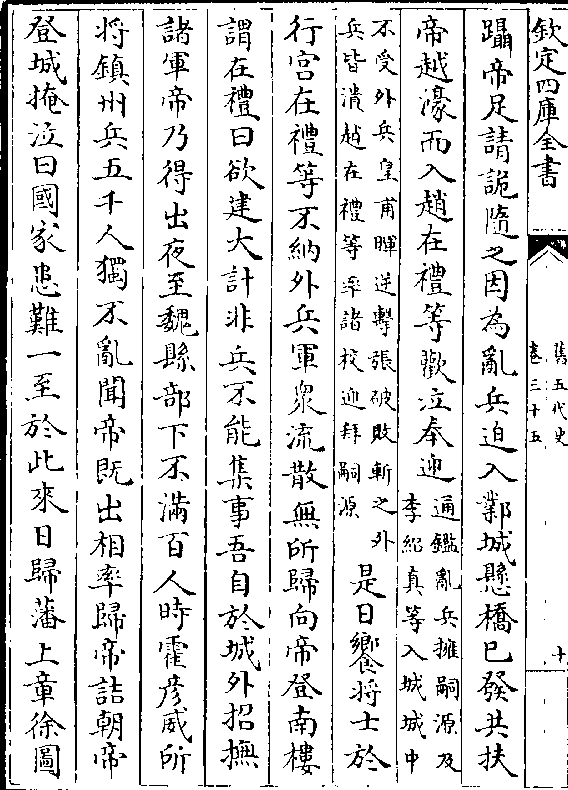 欽定四庫全書
舊五代史
卷三十五
十
躡帝足請詭隨之因為亂兵迫入鄴城懸橋已發共扶
帝越濠而入趙在禮等歡泣奉迎
通鑑亂兵擁嗣源及
李紹真等入城城中
不受外兵皇甫暉逆擊張破敗斬之外
兵皆潰趙在禮等率諸校迎拜嗣源
是日饗將士於
行宮在禮等不納外兵軍衆流散無所歸向帝登南樓
謂在禮曰欲建大計非兵不能集事吾自於城外招撫
諸軍帝乃得出夜至魏縣部下不滿百人時霍彦威所
將鎮州兵五千人獨不亂聞帝既出相率歸帝詰朝帝
登城掩泣曰國家患難一至於此來日歸藩上章徐圖